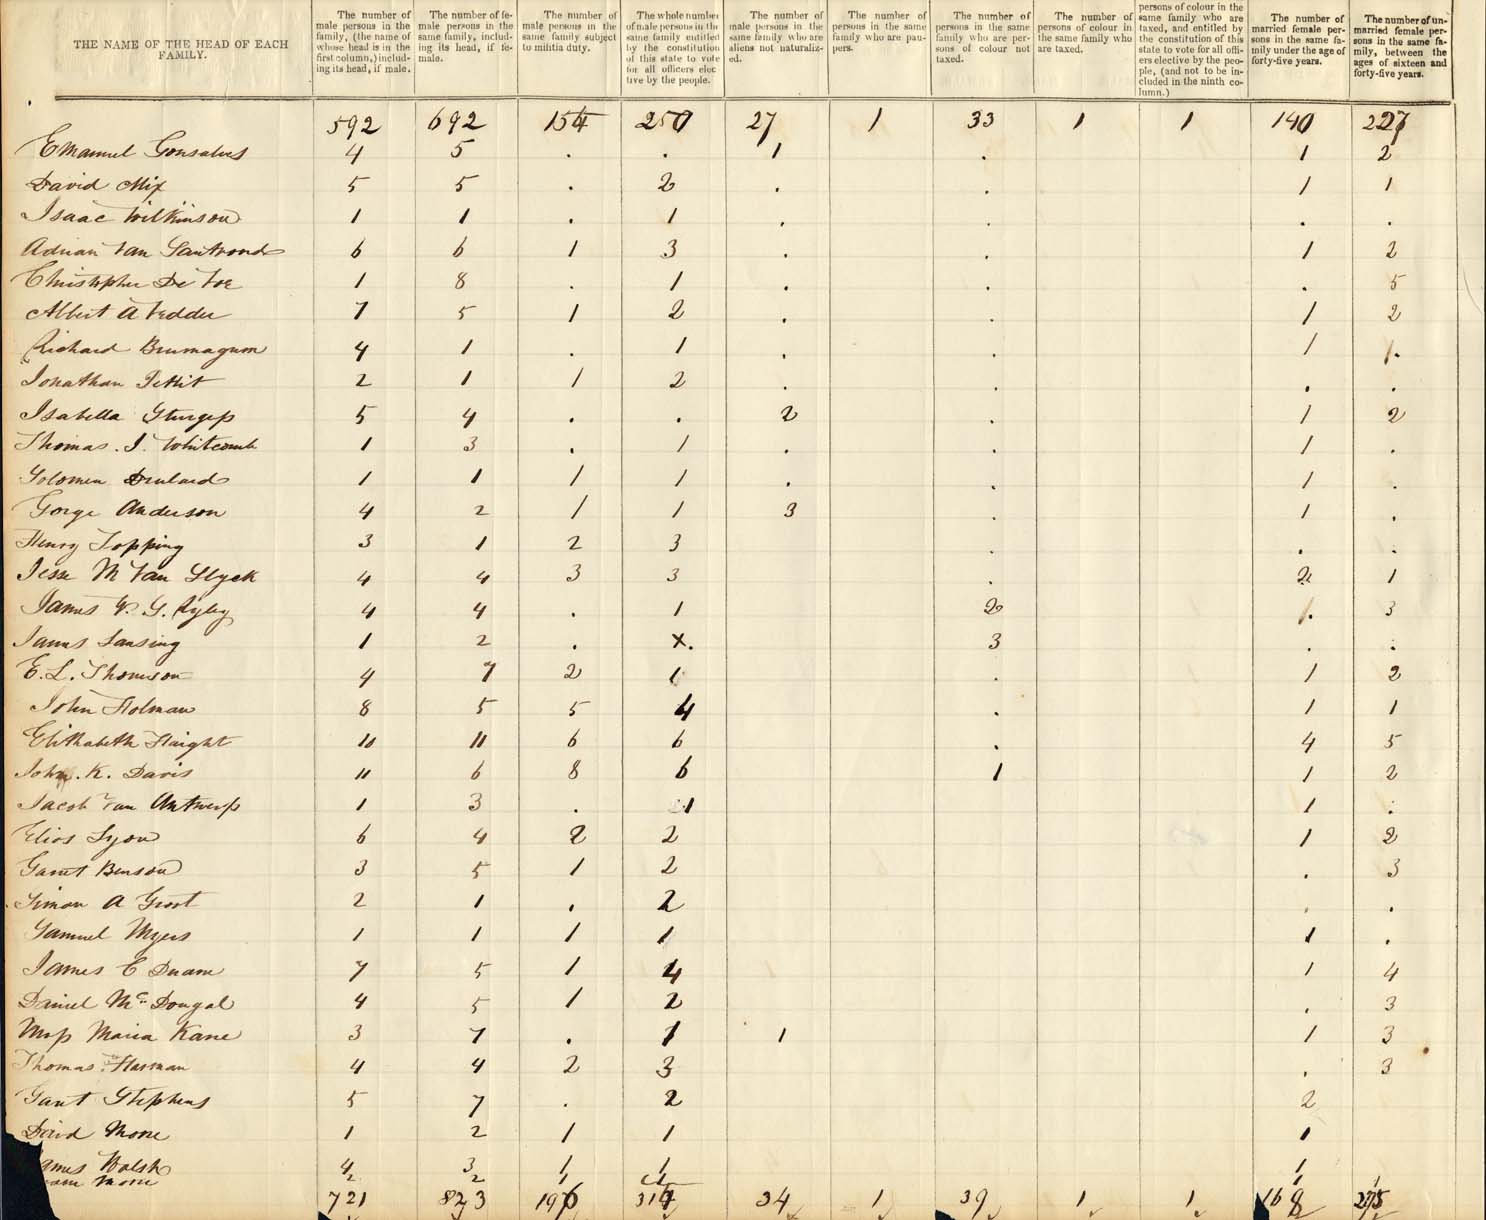 THE NAME OF THE HEAD OF EACH FAMILY.
The number of male persons in the same family, (the name of whose head is in the first column,) including its head, if male.
The number of female persons in the same family, including its head, if female.
The number of male persons in the same family subject to militia duty.
The whole number of male persons in the same family entitled by the constitution of this state to vote for all officers elective by the people.
The number of male persons in the same family who are aliens not naturalized.
The number of persons in the same family who are paupers.
The number of persons in the same family who are persons of colour not taxed.
The number of persons of colour in the same family who are taxed.
persons of colour in the same family who are taxed, and entitled by the constitution of this state to vote for all officers elective by the people, (and not to be included in the ninth column.)
The number of married female persons in the same family under the age of forty-five years.
The number of unmarried female persons in the same family, between the ages of sixteen and forty-five years.
592 692 154 250 27 1 33 1 1 140 227
Emanuel Gonsalves 4 5 . . 1 . 1 2
David Mix 5 5 . 2 . . 1 1
Isaac Wilkinson 1 1 . 1 . . . .
Adrian Van Santvoord 6 6 1 3 . . 1 2
Christopher De Voe 1 8 . 1 . . . 5
Albert A Vedder 7 5 1 2 . . 1 2
Richard Brumagum 4 1 . 1 . . 1 1.
Jonathan Pettit 2 1 1 2 . . . .
Isabella Sturgess 5 4 . . 2 . 1 2
Thomas. J. Whitcomb 1 3 . 1 . . 1 .
Solomon 1 1 1 1 . . 1 .
Gorge Anderson 4 2 1 1 3 . 1 .
Henry Topping 3 1 2 3 . . .
Jesse M Van Slyck 4 4 3 3 . 2 1
James V. G. Ryley 4 4 . 1 2 1. 3
James Lansing 1 2 . x. 3 . .
E. L. Thomson 4 7 2 1 . 1 2
John Holman 8 5 5 4 . 1 1
Elithabeth Haight 10 11 6 6 . 4 5
John. K. Davis 11 6 8 6 1 1 2
Jacob Van Antwerp 1 3 . 1 1 .
Elias Lyon 6 4 2 2 1 2
Garret Benson 3 5 1 2 . 3
Simon A Groot 2 1 . 2 . .
Samuel Myers 1 1 1 1 1 .
James C Duane 7 5 1 4 1 4
Daniel Mc Dougal 4 5 1 2 . 3
Miss Maria Kane 3 7 . 1 1 1 3
Thomas Harman 4 4 2 3 . 3
Garret Stephens 5 7 . 2 2
David Moore 1 2 1 1 1
ames Walsh 4 3 1 1 1
Moore 2 2 1 1 1
721 823 196 314 34 1 39 1 1 168 275